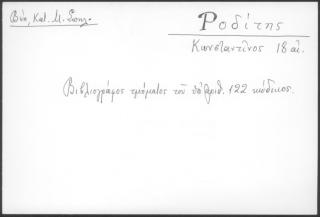 Βέη, Κατ. Μ. Σελ.
Ροδίτης
Κωνσταντῖνος 18 αἰ.
Βιβλιογράφος τμήματος τοῦ ὑπ' ἀριθ. 122 κώδικος.